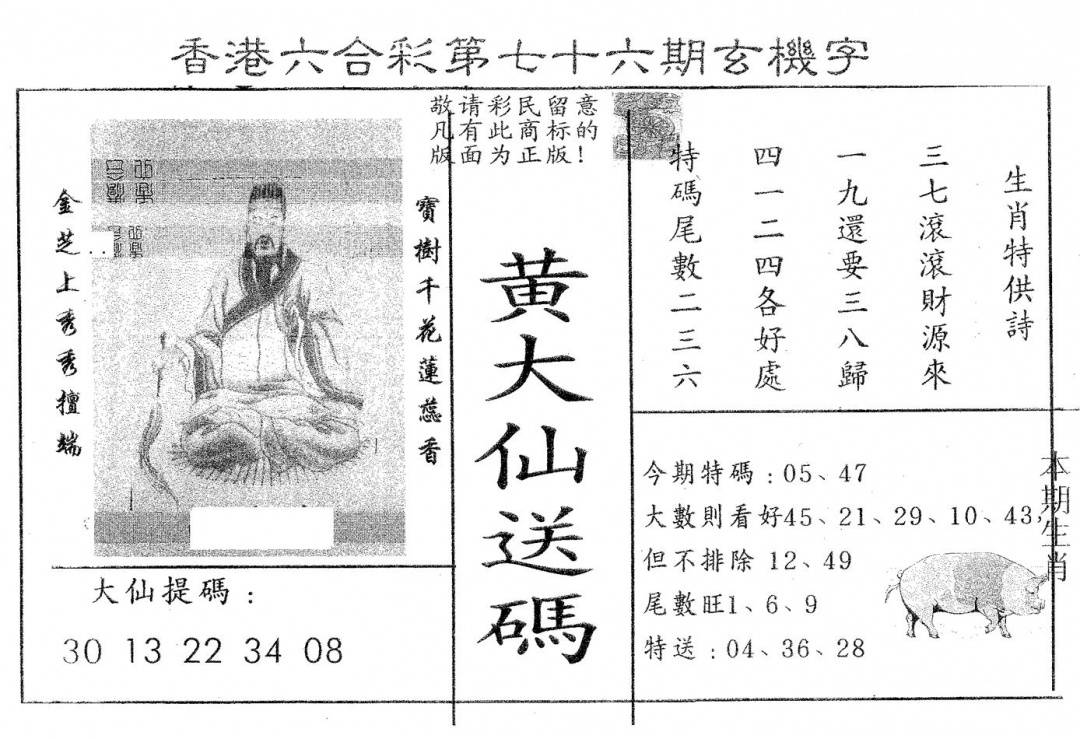 香港六合彩第七十六期玄機字
敬请彩民留意
凡有此商标的
版面为正版!
金芝上秀秀擅端
寶樹千花蓮蕊香
大仙提碼：
30 13 22 34 08
黄大仙送碼
生肖特供詩
三七滾滾財源來
一九還要三八歸
四一二四各好處
特碼尾數二三六
今期特碼：05、47
大數則看好45、21、29、10、43,
但不排除 12、49
尾數旺1、6、9
特送：04、36、28
本期生肖